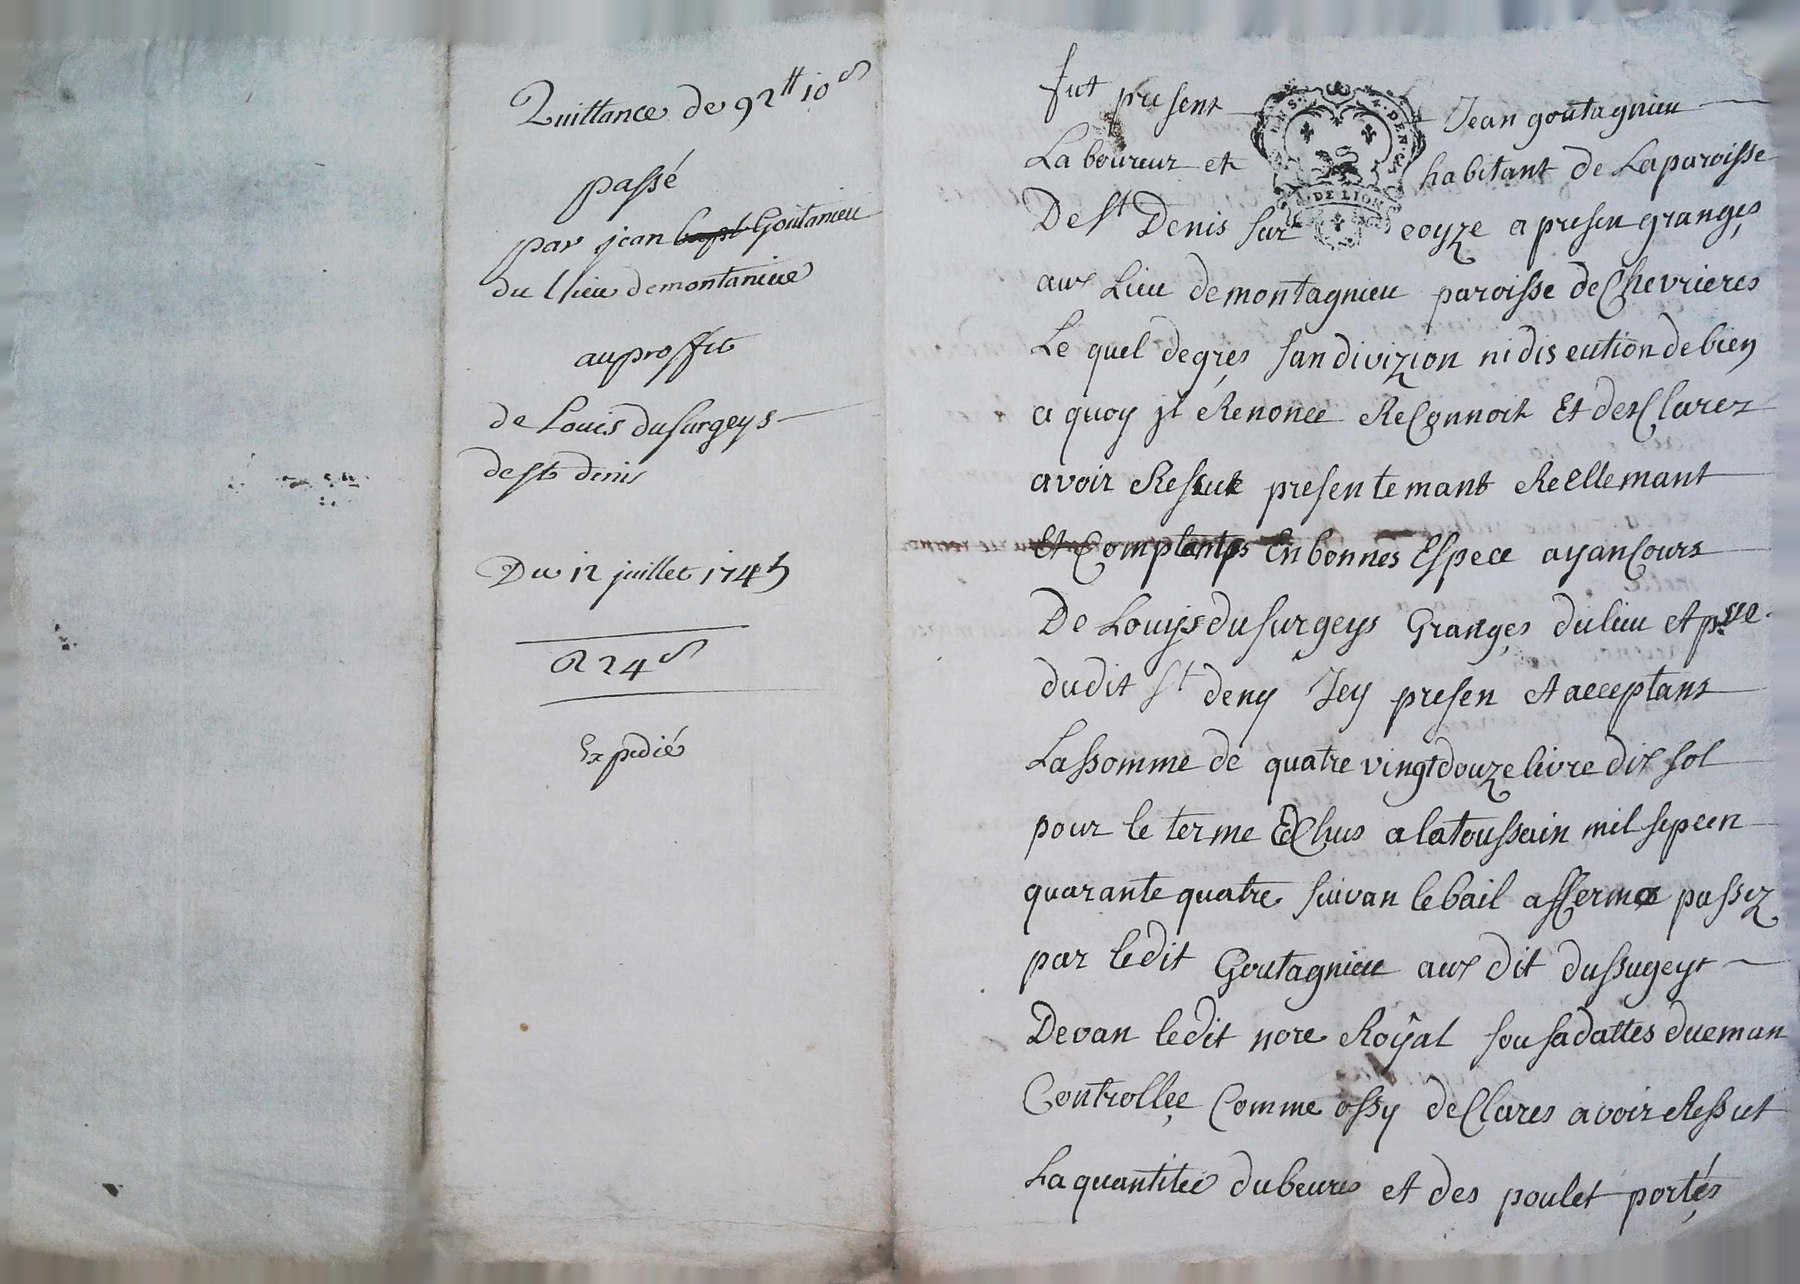 Quittance de 92# 10s
passé
par jean bapt Goutanieu
du llieu de montanieu
au proffit
de Louis dusurgeys
de st denis
Du 12 juillet 1745
R 24s
Expedié
fut present Jean goutagnieu
Laboureur et habitant de La paroisse
De st Denis sur coyze a presen granges
aux Lieu de montagnieu paroisse de Chevrieres
Le quel de gres san divizion ni discution de bien
a quoy jl Renonce Reconnoit Et desClarez
avoir Ressut presentemant Reellemant
Et Comptants En bonnes Espece ayan Cours
De Louys dusurgeys Granges du lieu et psse
du dit st deny Jcy presen et acceptant
La ssomme de quatre vingt douze livre dix sol
pour le terme Echus a la toussain mil sep cen
quarante quatre suivan le bail afferme passez
par ledit Goutagnieu aux dit dussugeyt
Devan ledit nore Royal sou sa dattes dueman
Controllee Comme ossy deClares avoir Ressut
La quantitee du beures et des poulet portés
DE LION